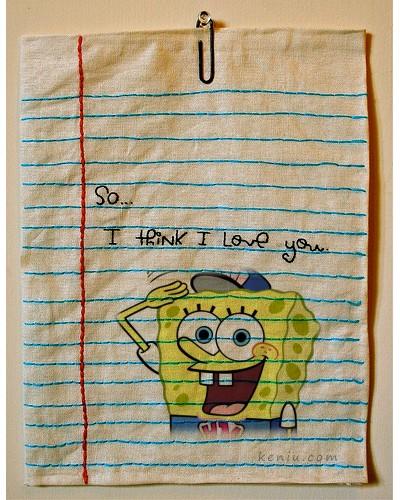 So...
I think I love you.
keniu.com